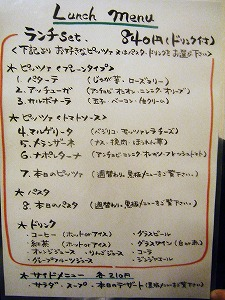 Lunch Menu
ランチset. 840円(ドリンク付)
<下記より お好きなピッツァ又はパスタ、ドリンクをお選び下さい>
★ ピッツァ <プレーンタイプ>
1. パターテ (じゃが芋・ローズマリー)
2. アッチューガ (アンチョビ・オニオン・ニンニク・オリーブ)
3. カルボナーラ (玉子・ベーコン・生クリーム)
★ ピッツァ <トマトソース>
4. マルゲリータ (バジリコ・モッツァレラチーズ)
5. メランザーネ (ナス・挽肉・ほうれん草)
6. ナポレターナ (アンチョビ・ニンニク・オレガノ・フレッシュトマト)
7. 本日のピッツァ (週替わり、黒板メニューをご覧下さい。)
★ パスタ
8. 本日のパスタ (週替わり、黒板メニューをご覧下さい。)
★ ドリンク
・コーヒー (ホット or アイス) ・グラスビール
・紅茶 (ホット or アイス) ・グラスワイン (白 or 赤)
・オレンジジュース ・りんごジュース ・コーラ
・グレープフルーツジュース ・ジンジャエール
★ サイドメニュー 各210円
・サラダ ・スープ ・本日のデザート (黒板メニューをご覧下さい)